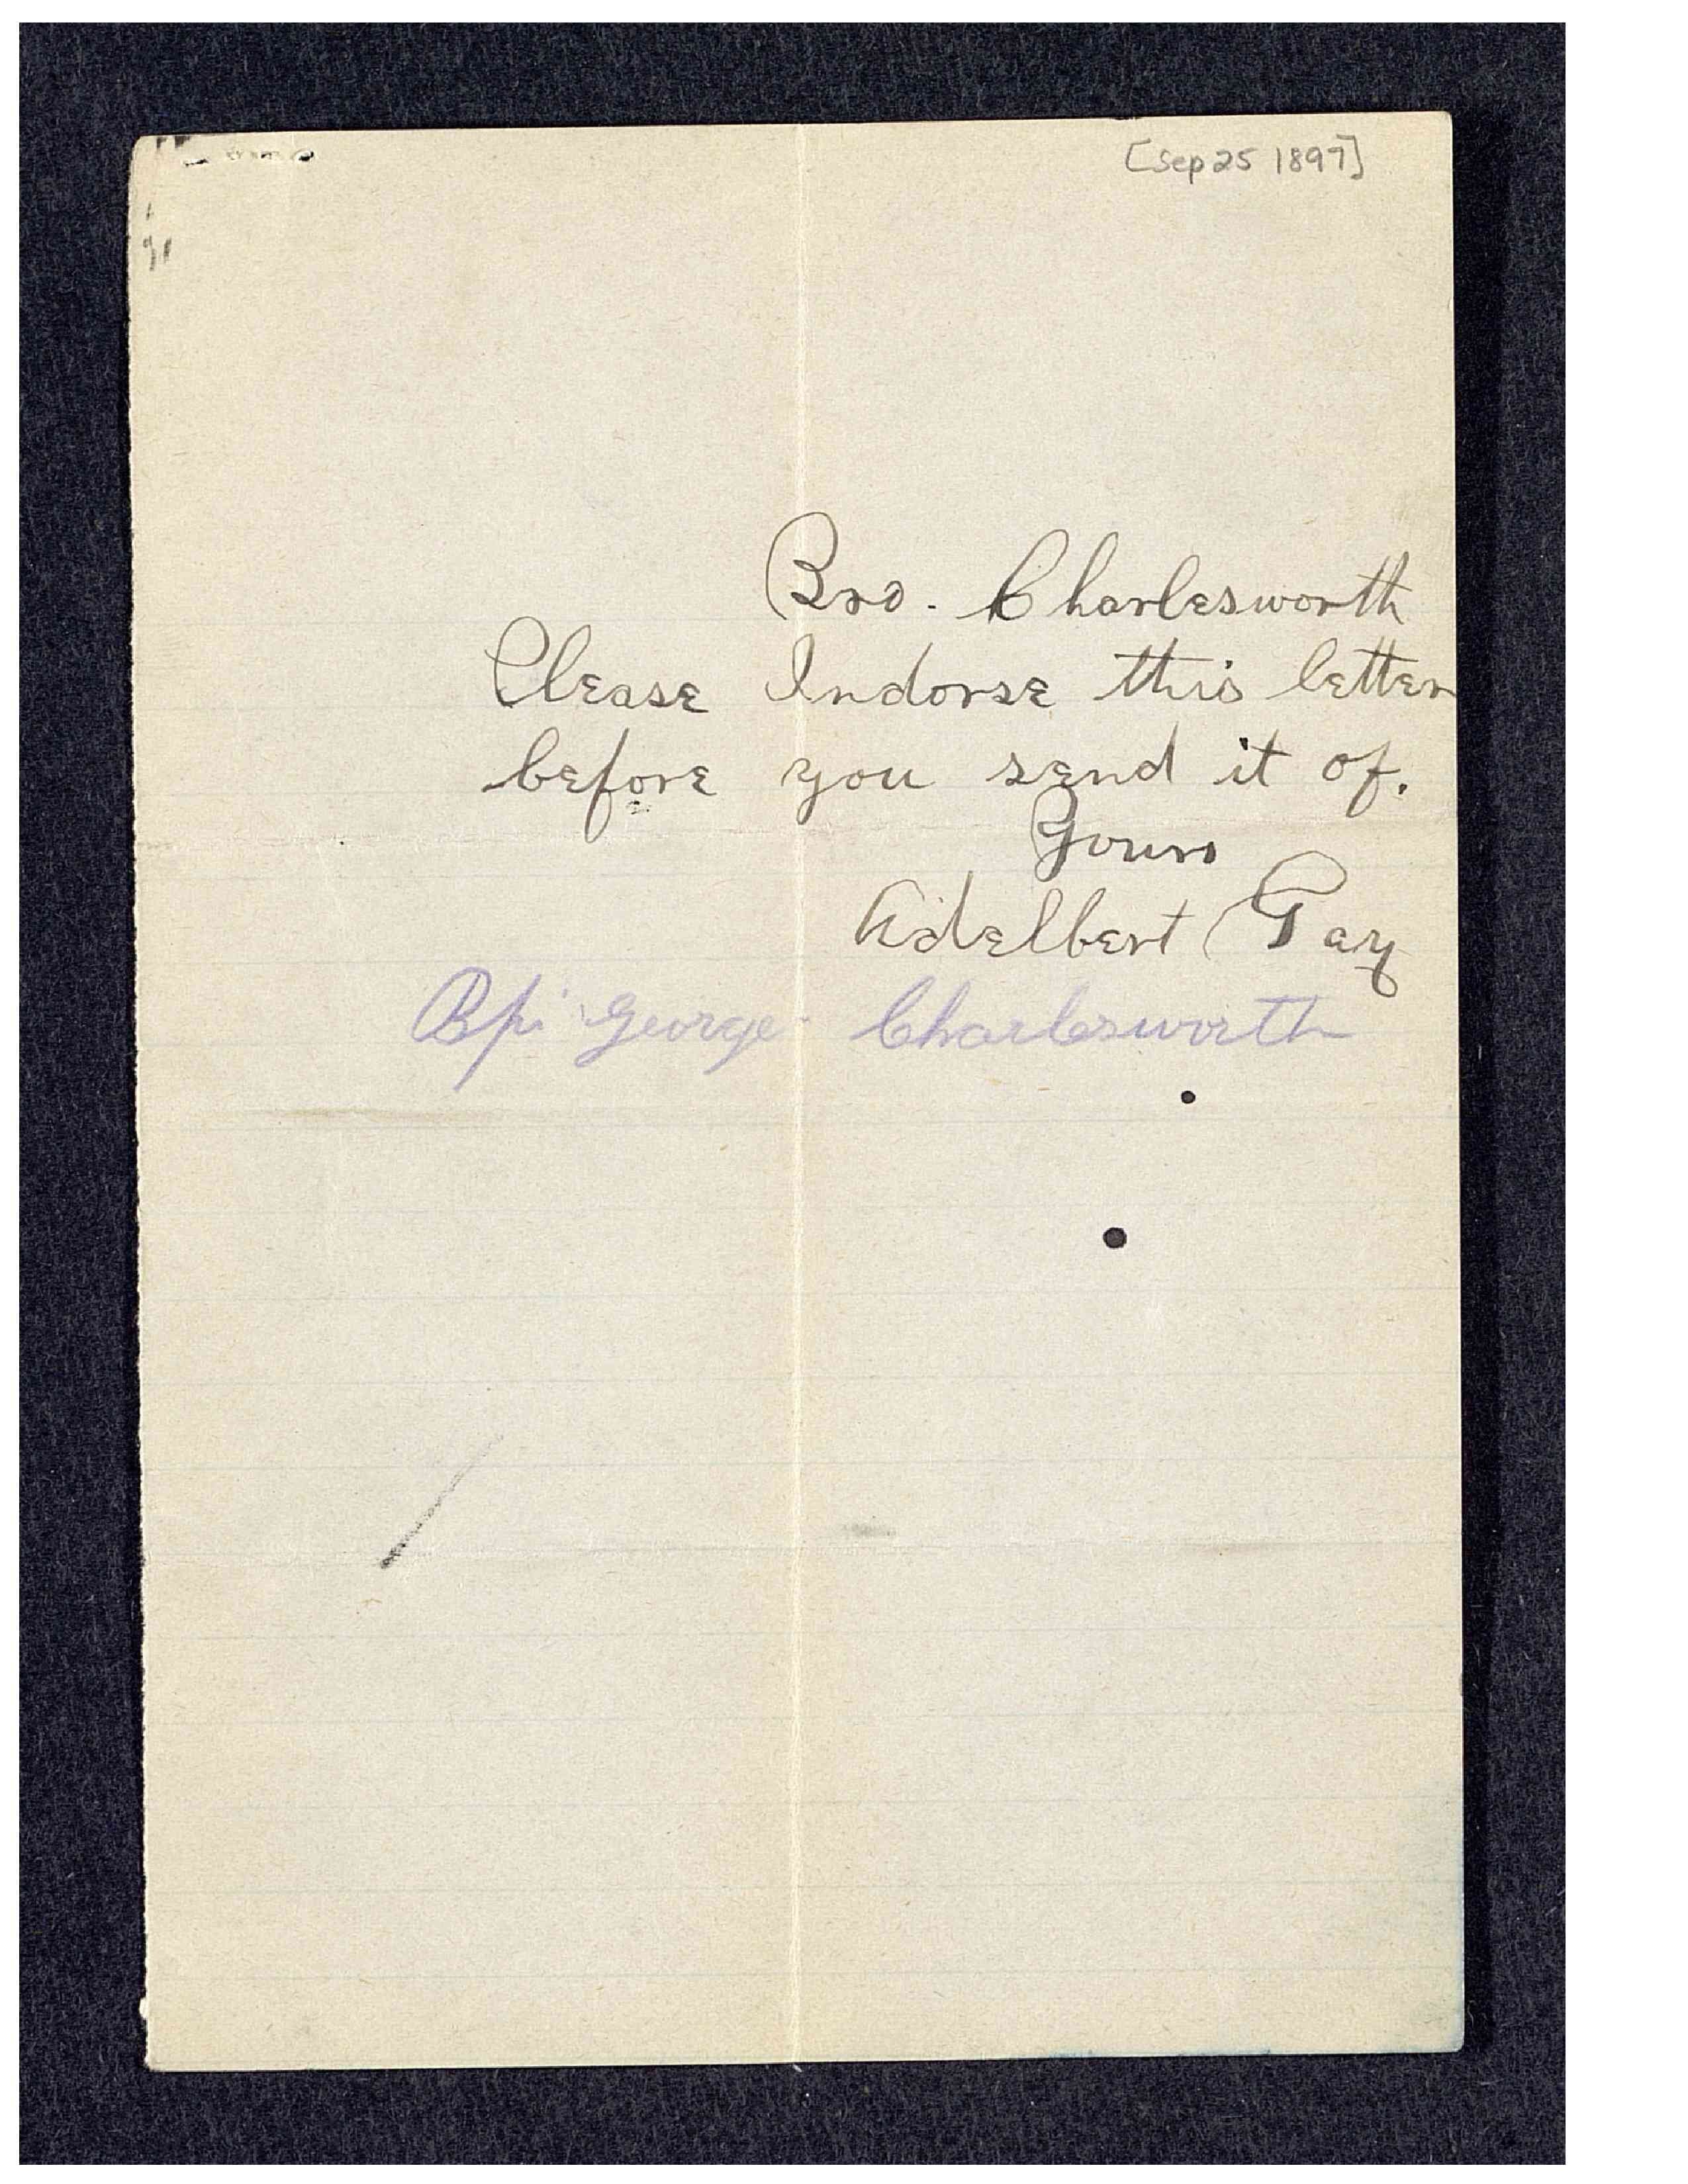 [Sep 25 1897]
Bro. Charlesworth
Please Indorse this letter
before you send it of.
Yours
Adelbert Gay
Bp George Charlesworth